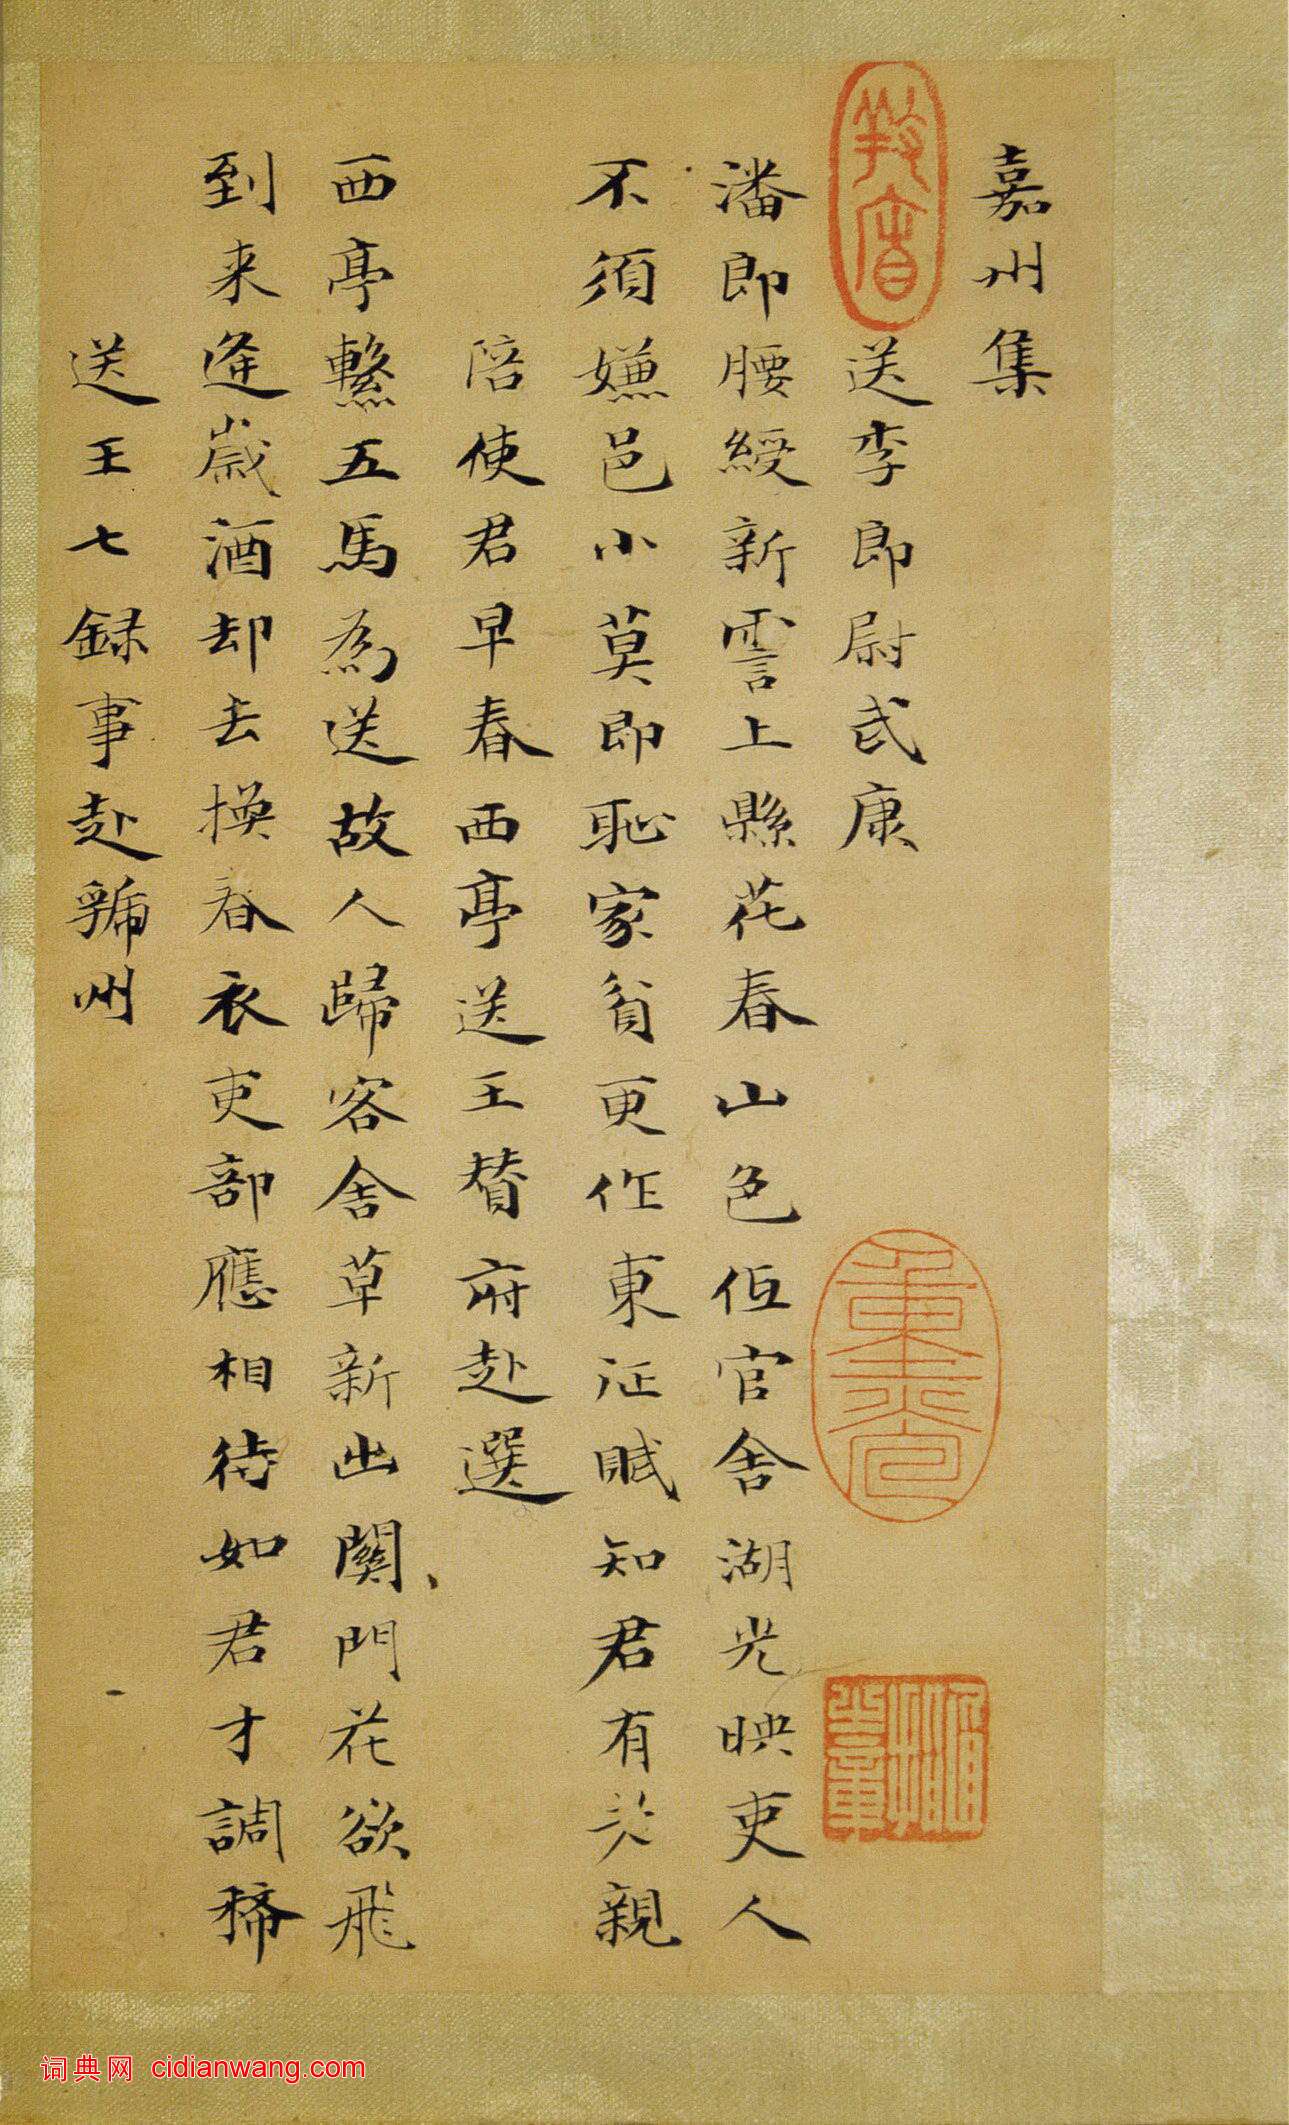 嘉州集
送李郎尉武康
潘郎腰綬新霅上縣花春山色低官舍湖光映吏人
不須嫌邑小莫即恥家貧更作東征賦知君有老親
陪使君早春西亭送王賛府赴選
西亭繫五馬為送故人歸客舍草新出關門花欲飛
到来逢歲酒却去換春衣吏部應相待如君才調稀
送王七録事赴虢州
词典网 cidianwang.com